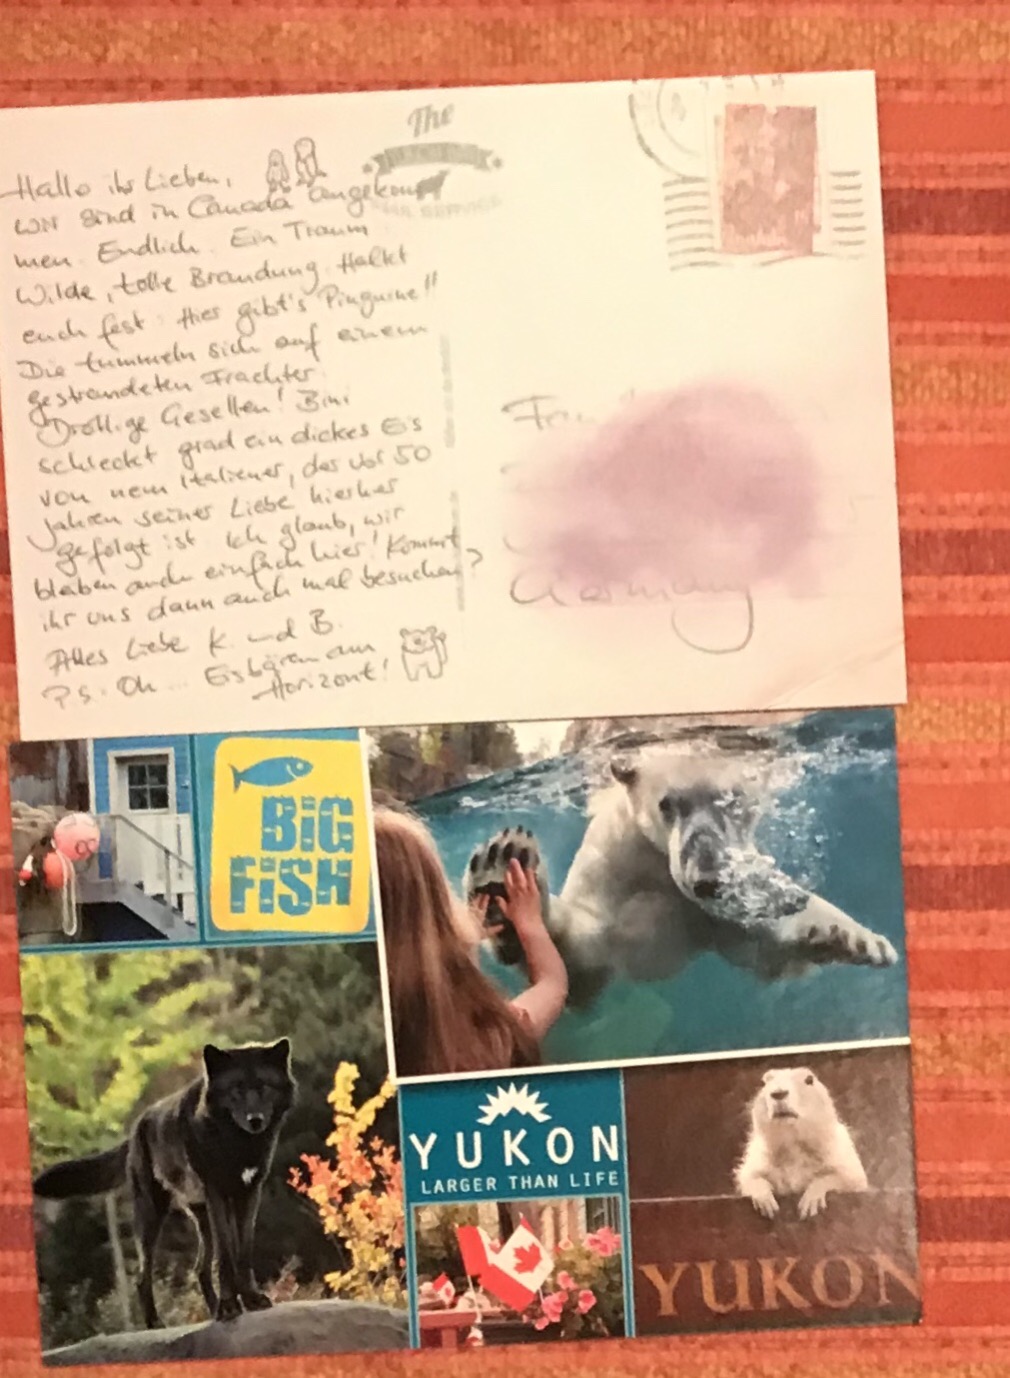 The
SERVICE
Hallo ihr Lieben,
wir sind in Canada angekom
men. Endlich. Ein Traum
Wilde, tolle Brandung. Haltet
euch fest: Hier gibt's Pinguine!!
Die tummeln sich auf einem
gestrandeten Frachter.
Drollige Gesellen! Bini
schleckt grad ein dickes Eis
von nem Italiener, der vor 50
Jahren seiner Liebe hierher
gefolgt ist. Ich glaub, wir
bleiben auch einfach hier! Kommt
ihr uns dann auch mal besuchen?
Alles Liebe K. und B.
P.S. Oh... Eisbären am
Horizont!
Germany
BiG
FiSH
YUKON
LARGER THAN LIFE
YUKON